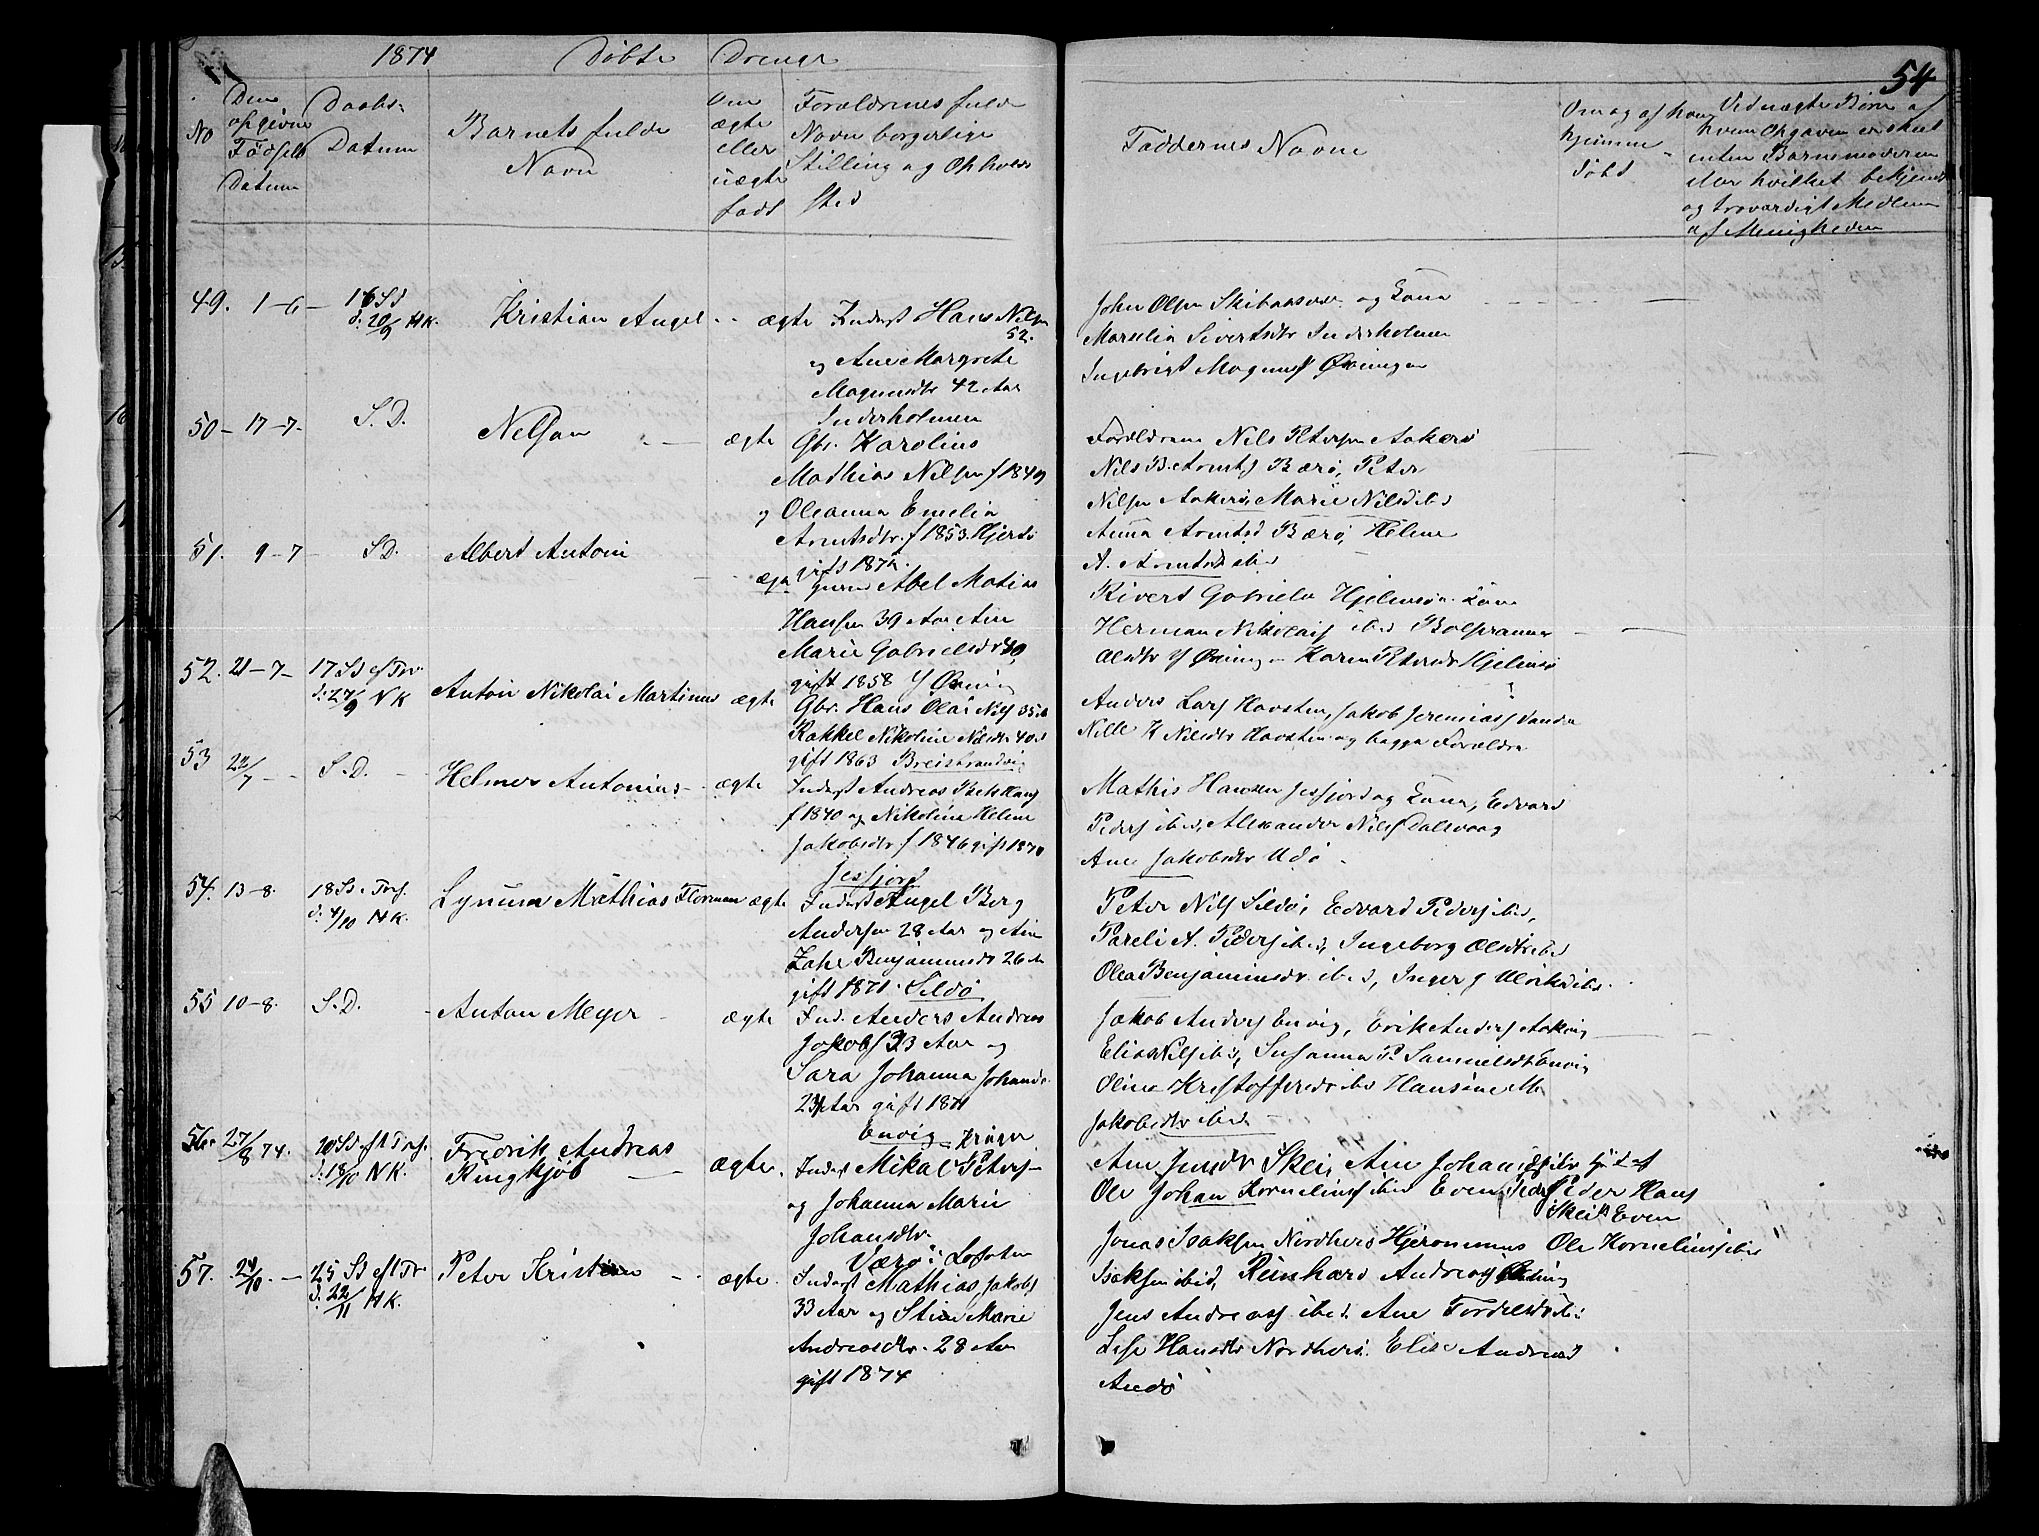 1874 Døbte Drenge
54
No
Den opgivne Fødsels Datum
Daabs-Datum
Barnets fulde Navn
Om ægte eller uægte født
Forældrenes fulde Navn borgerlige Stilling og Opholdssted
Faddernes Navne
Om og af hvem hjemmedøbt
Ved uægte Børn af hvem Opgaven er skeet enten Barnemoderen eller hvilket bekjendt og troværdigt Medlem af Menigheden
49. 1-6- 16 Sd d: 20/9 NK. Kristian Angel - ægte Inderst Hans Nilsen 52.
og Ane Margrete
Magnusdtr 42 Aar
Inderholmen
John Olsen og Kona
Marselia Sivertsdtr Inderholmen
Ingebrigt Magnus Øxningen
50- 17-7- S. D. Nelsan - ægte Gbr. Karolius
Mathias Nilsen f 1849
og Oleanna Emelia
Arntsdtr. f 1853. Hjertø
gift 187
Forældrene Nils Petersen Aakerø
Nils B. Arnts Bærø, Peter
Nilsen Aakerø, Marie Nilsd ibd
Anna Arntsd Bærø, Helene
A. Arntsd ibd
51. 9-7 S.D. Albert Antoni - ægte Abel Matias
Hansen 39 Aar Ane
Marie Gabrielsdtr 40
gift 1858 Y Øxning
Sivert Gabrielsen Hjelmsø Kone
Herman Nikolais ibd
Olsdtr Y Øxning - Karen Petersdr Hjelmsø
52. 21-7- 17 Sd ef Tr d: 27/9 NK Anton Nikolai Martinus ægte Gbr. Hans Olai Nils 35 A
Rakkel Nikoline Nilsdtr 40 A
gift 1863 Breistrandvig
Anders Lars Havsten, Jakob Jeremias Vandve
Nille K Nilsdtr Havsten og begge Forældre
53 22/7 - S.D. - Helmer Antonius - ægte Inderst Andreas Beck Hans
f 1840 og Nikoline Helene
Jakobsdtr f 1846 gift 1870
Jessfjord
Mathis Hansen Jessfjord og Kona, Edvard
Peders ibd, Alexander Nils Dalsvaag
Ane Jakobsdtr Udø -
54. 13-8. 18 Sd e. Tref. d: 4/10 NK. Lynum Mathias Floman ægte Inderst Angel Berg
Andersen 28 Aar og Ane
Zahl Benjaminsdtr 26 A
gift 1871. Sildø
Peter Nils Sildø, Edvard Peders ibd,
Pareli A. Peders ibd, Ingeborg Olsdtr ibd
Olea Benjaminsdr ibd, Inger J Ulriks ibd.
55 10-8. S.D. - Anton Meyer - ægte Ind. Anders Andreas
Jakobs 33 Aar og
Sara Johanna Johansdr
23 Aar gift 1871
Envig
Jakob Anders Envig, Erik Anders Aakvig
Elias Nils ibd, Susanna P. Samuelsdtr Envig
Oline Kristoffersdr ibd Hansine M.
Jakobsdtr ibd. -
56. 27/8 74. 20 Sd eft Tref. d: 18/10 NK. Fredrik Andreas
Ringkjøb - ægte. Inderst Mikal Krüger Peters
og Johanna Marie
Johansdtr.
Værø i Lofoten
Ane Jensdr Skei, Ane Johansdtr
Ole Johan Kornelius ibd Even Peder Hans
Skei Even
Ole Kornelius ibd.
57. 24/10. - 25 Sd eft Tr d: 22/11 NK. Peter Kristian - ægte. Inderst Mathias Jakobs
33 Aar og Stina Marie
Andreasdtr. 28 Aar
gift 1874
Jonas Isaksen Nordherø Hjeronimus
Isaksen ibid, Reinhard Andreas Øxning
Jens Andreas ibd. Ane Tordelsdr ibd
Lise Hansdtr Nordherø. Elise Andreasd
Andø